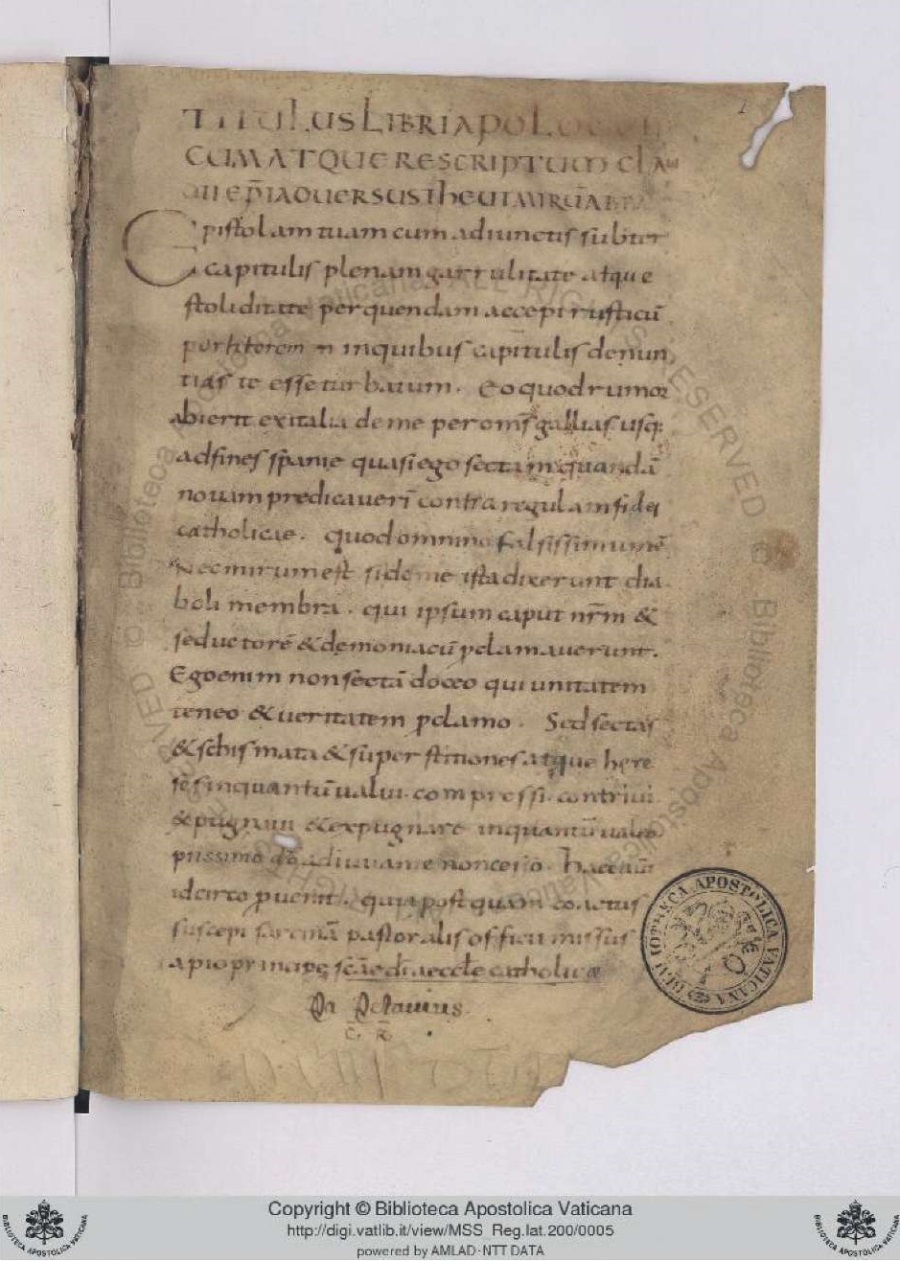 1
TITULUS LIBRI APOLOGETI
CUM ATQUE RESCRIPTUM CLAU
DII EP̄I ADVERSUS THEUTMIRŪ ABBA
Epistolam tuam cum adiunctis subter
capitulis plenam garrulitate atque
stoliditate per quendam accepi rusticū
portitorem in quibus capitulis denun
tias te esse turbatum. Eo quod rumor
abierit ex italia de me per om̄s gallias usq;
ad fines spanie quasi ego sectam quandā
novam predicaverī contra regulam fidei
catholicae. quod omnino falsissimum ē
Nec mirum est si de me ista dixerunt dia
boli membra. qui ipsum caput nr̄m &
seductorē & demoniacū pclamaverunt.
Ego enim non sectā doceo qui unitatem
teneo & veritatem pclamo. Sed sectas
& schismata & superstitiones atque here
ses inquantū valui. compressi. contrivi
& pugnavi & expugnare inquantū valeo
piissimo dō adiuvante non cesso. Haec aūt
idcirco puenit. quia postquam coactus
suscepi sarcinā pastoralis officii missus
a pio principe scāe dī aeccle catholicae
Petavius
BIBLIOTHECA APOSTOLICA VATICANA
Copyright © Biblioteca Apostolica Vaticana
http://digi.vatlib.it/view/MSS_Reg.lat.200/0005
powered by AMLAD-NTT DATA